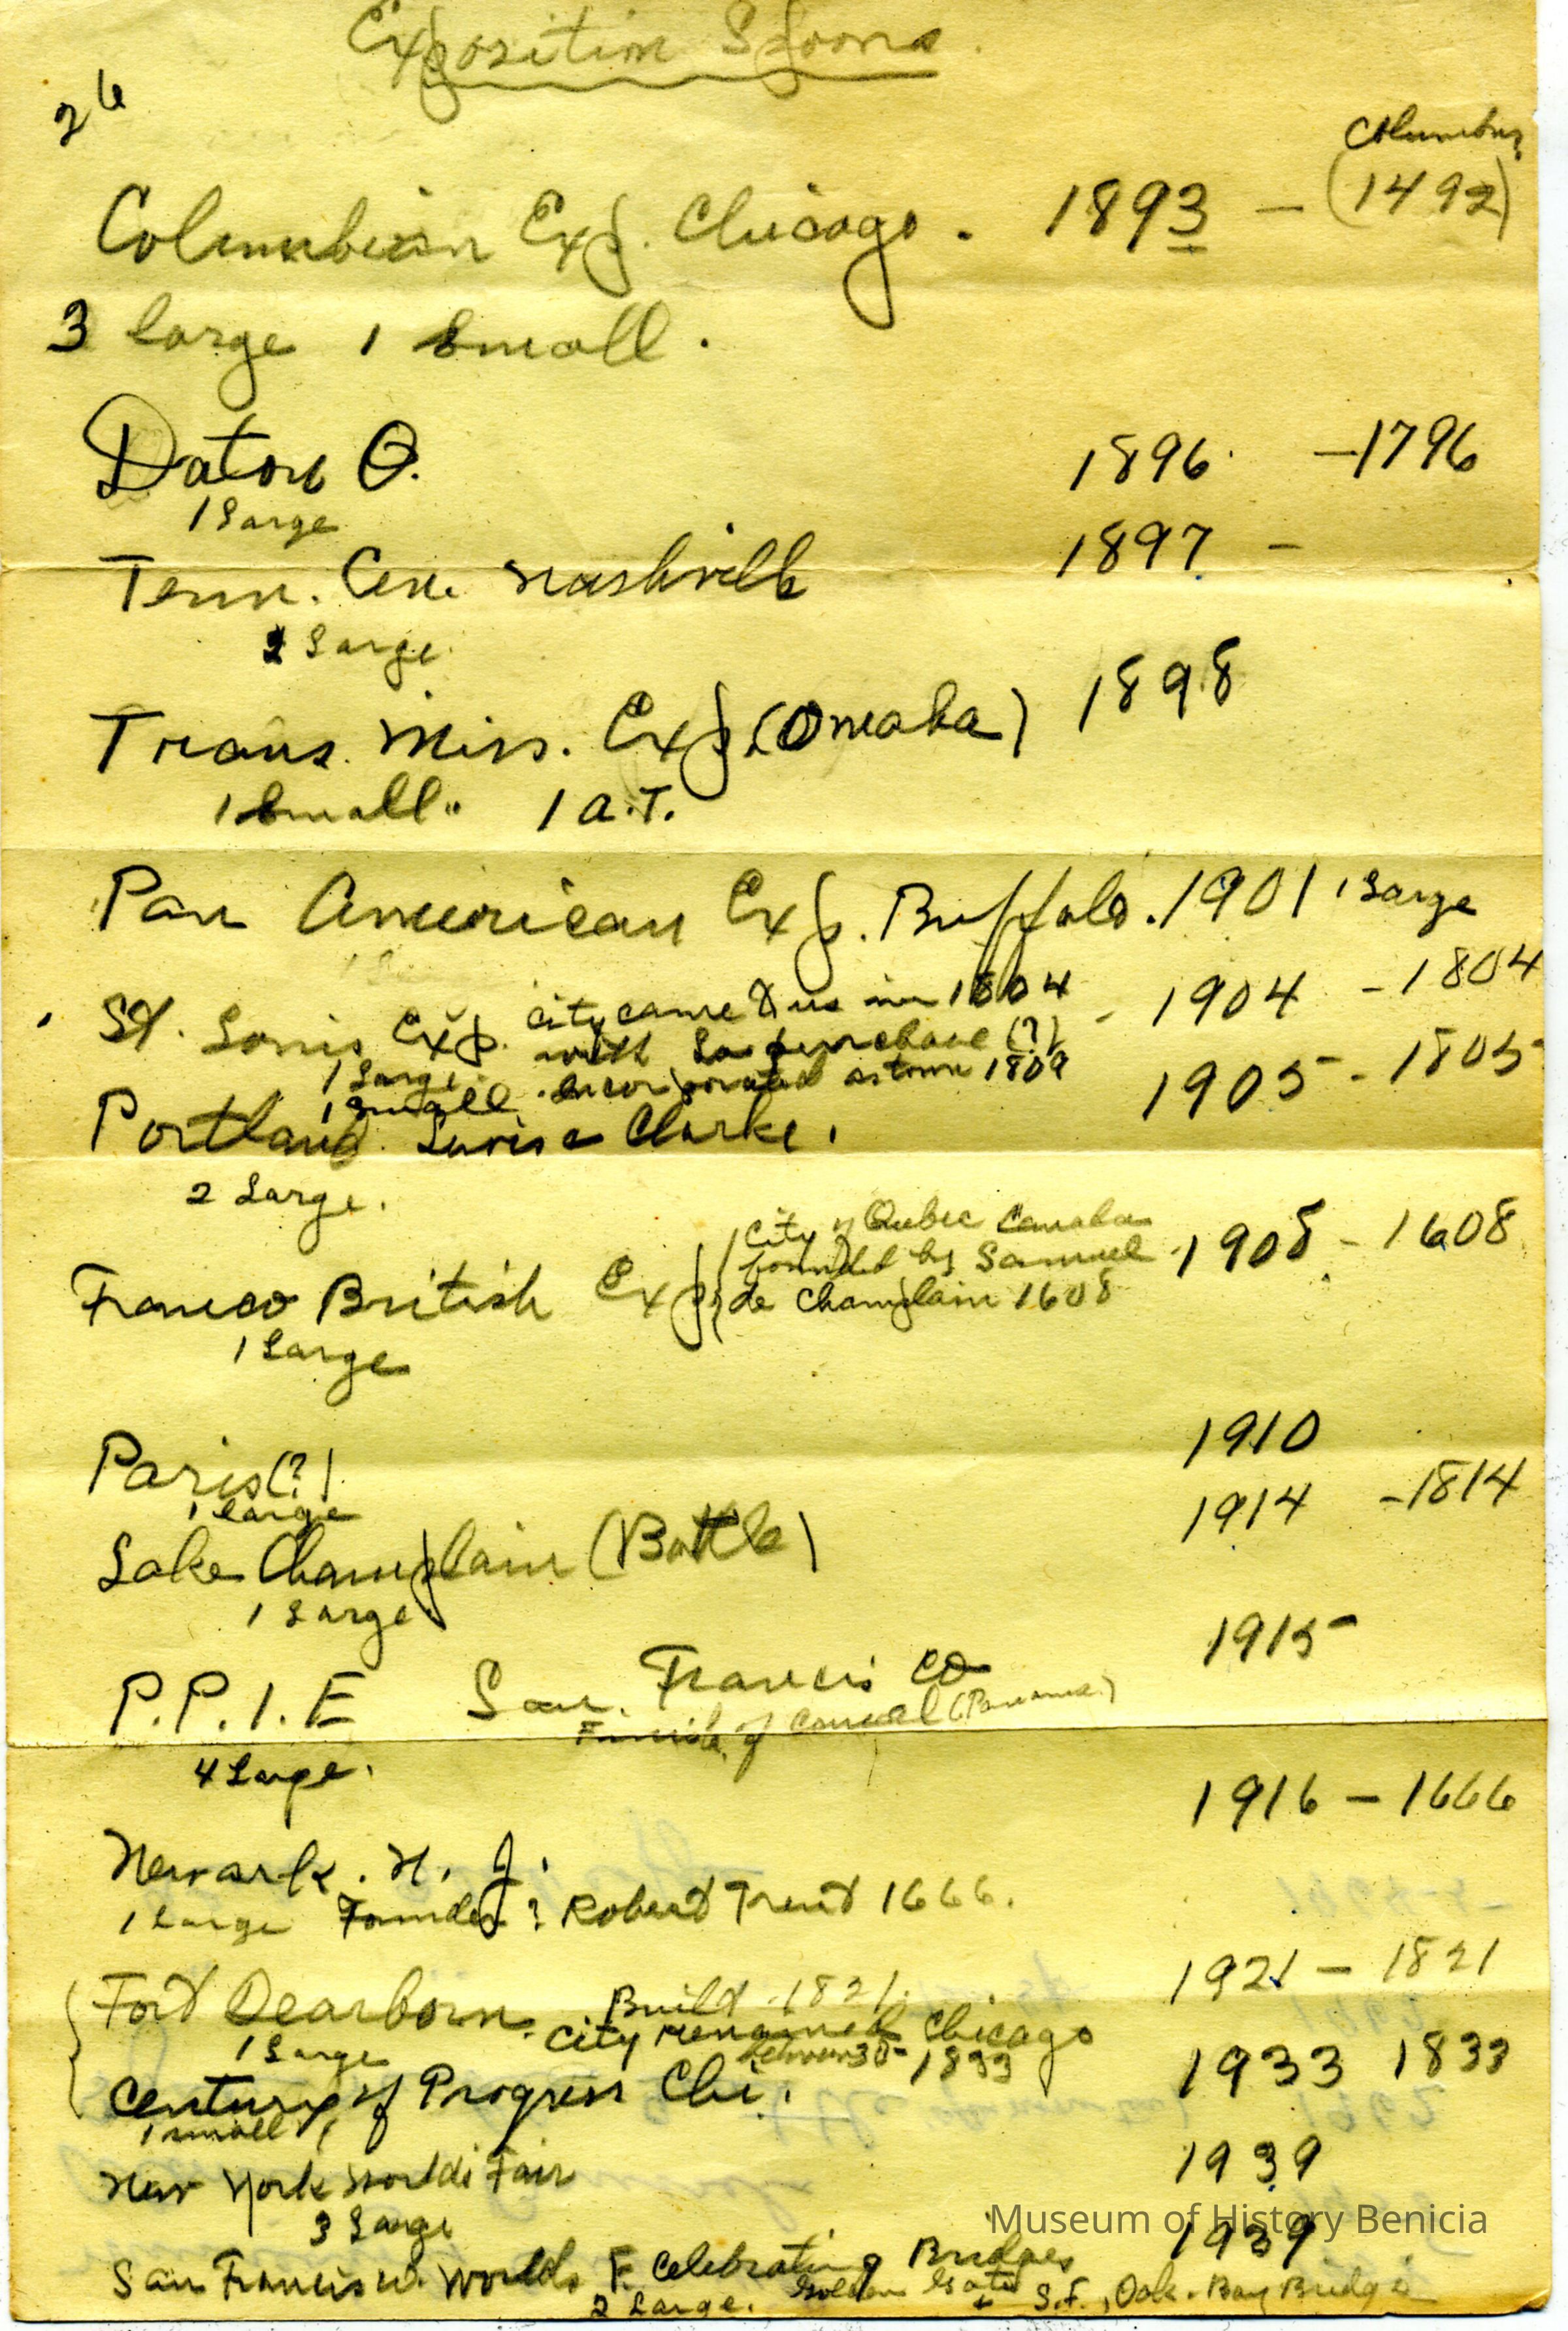 Exposition Spoons.
26
Columbus
Columbian Exp. Chicago. 1893 - (1492)
3 large 1 small.
Daton O. 1896 - 1796
1 Large
Tenn. Cen. Nashville 1897 -
Large
Trans. Miss. Exp. (Omaha) 1898
1 small 1 A.T.
Pan American Exp. Buffalo. 1901 1 Large
St. Louis Exp. city came to us in 1804 - 1904 - 1804
with La purchase (?)
1 Large incorporated as town 1809
1 small
Portland Lewis & Clarke. 1905 - 1805
2 Large.
Franco British Exp. 1908 - 1608
City of Qubec Canada
founded by Samuel
de Champlain 1608
1 Large
Paris (?) 1910
1 large
Lake Champlain (Battle) 1914 - 1814
1 Large
P.P.I.E San Francisco 1915
of Canal (Panama)
4 Large.
Newark. N. J. 1916 - 1666
1 Large Founder: Robert Treat 1666.
Fort Dearborn. Build 1821. 1921 - 1821
City renamed Chicago
1 Large 1833
Century of Progress Chi. 1933 1833
1 small
New York Worlds Fair 1939
3 Large
San Francisco. Worlds F. Celebrating Bridges 1939
2 Large. Golden Gate + S.F., Oak. Bay Bridge
Museum of History Benicia